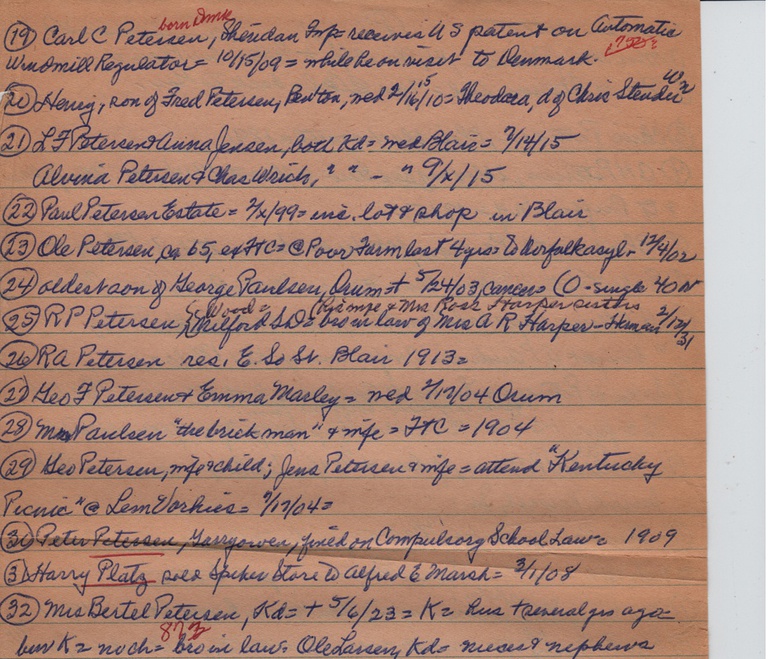 born Dmk
(19) Carl C Petersen, Sheridan Twp = receives US patent on Automatic
Windmill Regulator = 10/15/09 = while he on visit to Denmark.
(20) Henry, son of Fred Petersen, Benton, wed 2/16/10 = Theodora, d of Chris Stender
(21) L F Petersen & Anna Jensen, both Kd = wed Blair = 7/14/15
Alvina Petersen & Chas Wrich, " " - " 9/x/15
(22) Paul Petersen Estate = 7/x/99 = inc. lot & shop in Blair
(23) Ole Petersen, ca 65, ex FtC = @ Poor Farm last 4 yrs = to Norfolk asyl - 12/4/02
(24) oldest son of George Paulsen, Orum = + 5/24/03, cancer = (O - single 40 N
Wood = (his wife & Mrs Rose Harper
(25) R P Petersen, Milford SD = bro in law of Mrs A R Harper - Herman 2/12/31
(26) R A Petersen res. E. So St. Blair 1913 =
(27) Geo F Petersen & Emma Masley = wed 2/17/04 Orum
(28) Paulsen "the brick man" & wife = FtC = 1904
(29) Geo Petersen, wife & child; Jens Petersen & wife = attend "Kentucky
Picnic" @ Lem Vorhies = 9/12/04 =
(30) Peter Petersen, Garryowen, fined on Compulsory School Law = 1909
(31) Harry Platz sold Spiker Store to Alfred E Marsh = 3/1/08
(32) Mrs Bertel Petersen, Kd = + 5/6/23 = K = hus + several yrs ago =
873
bur K = no ch = bro in law = Ole Larsen, Kd = nieces & nephews